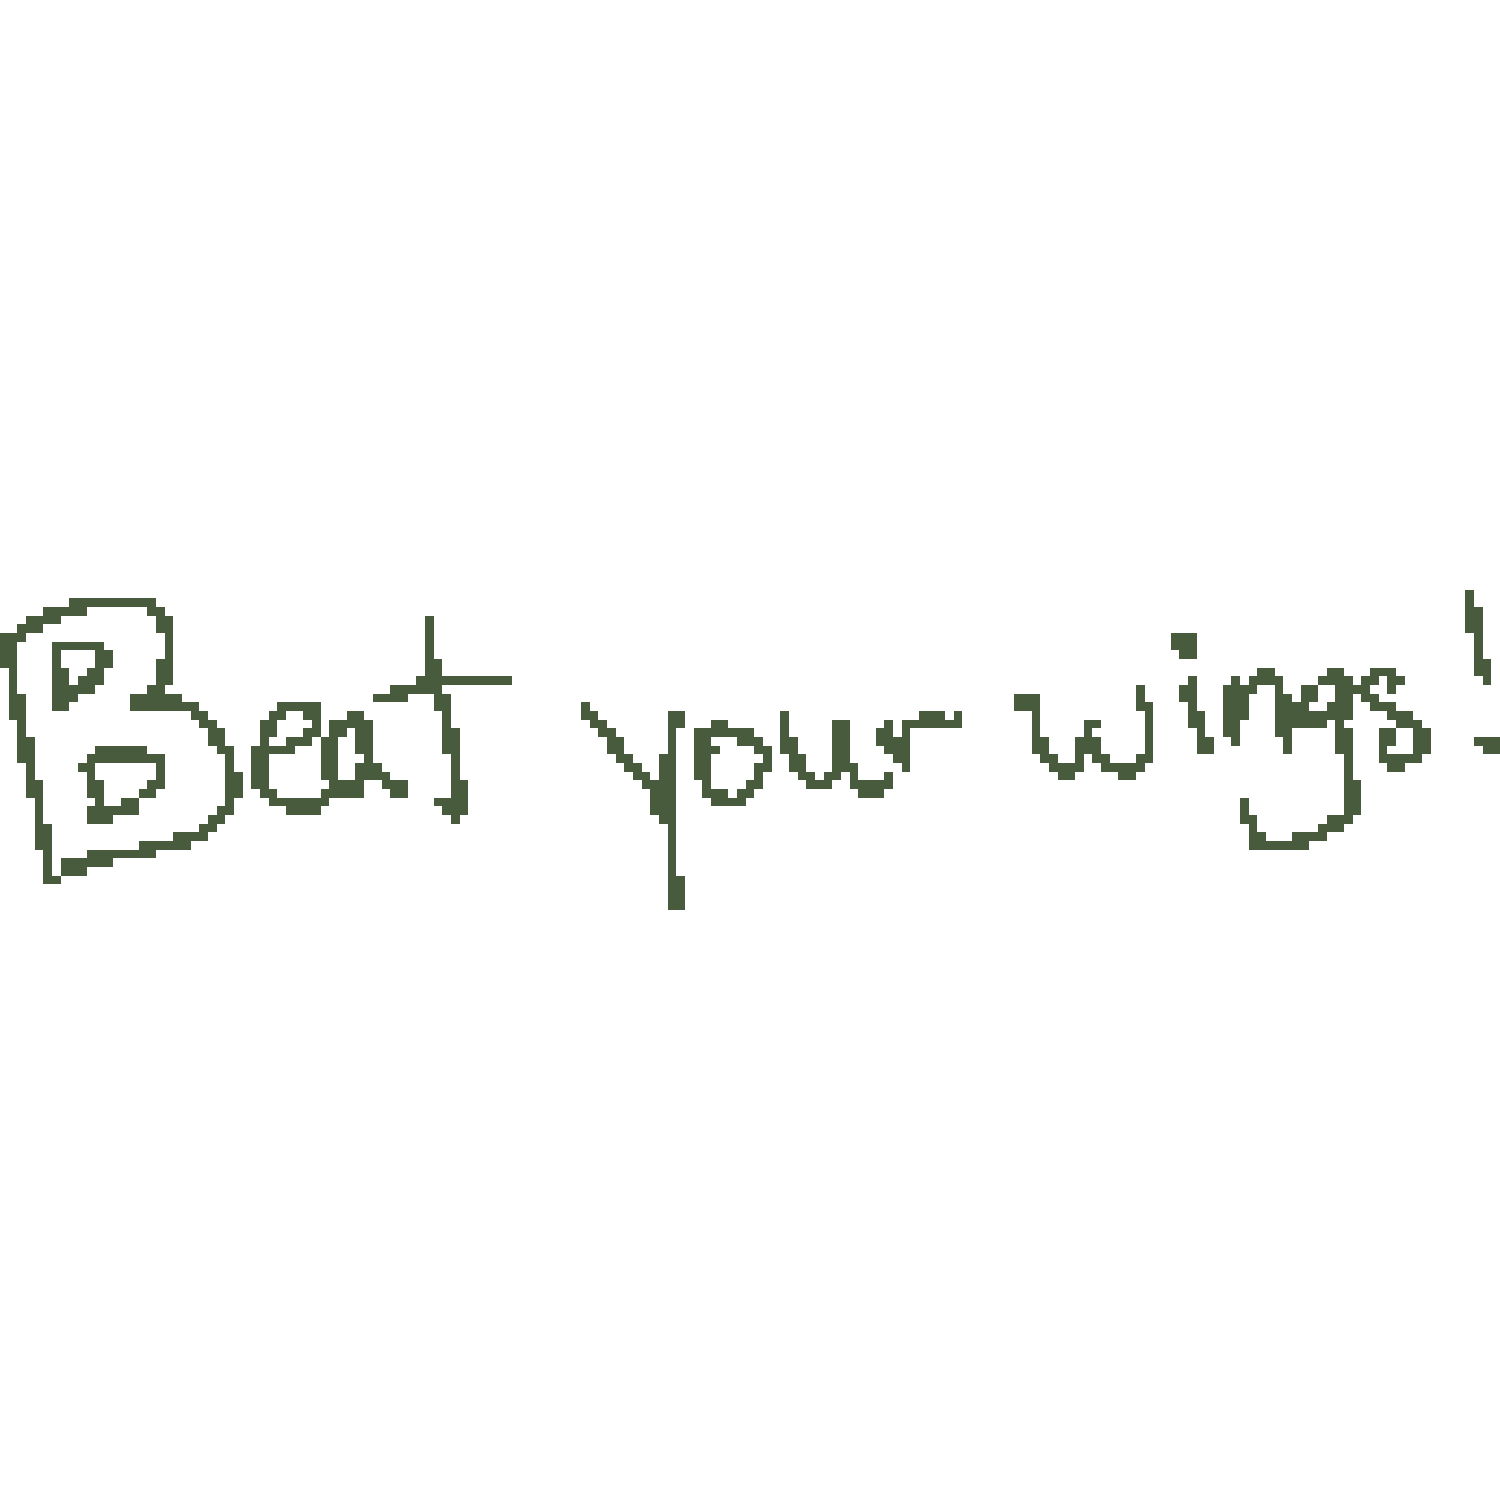 Beat your wings!